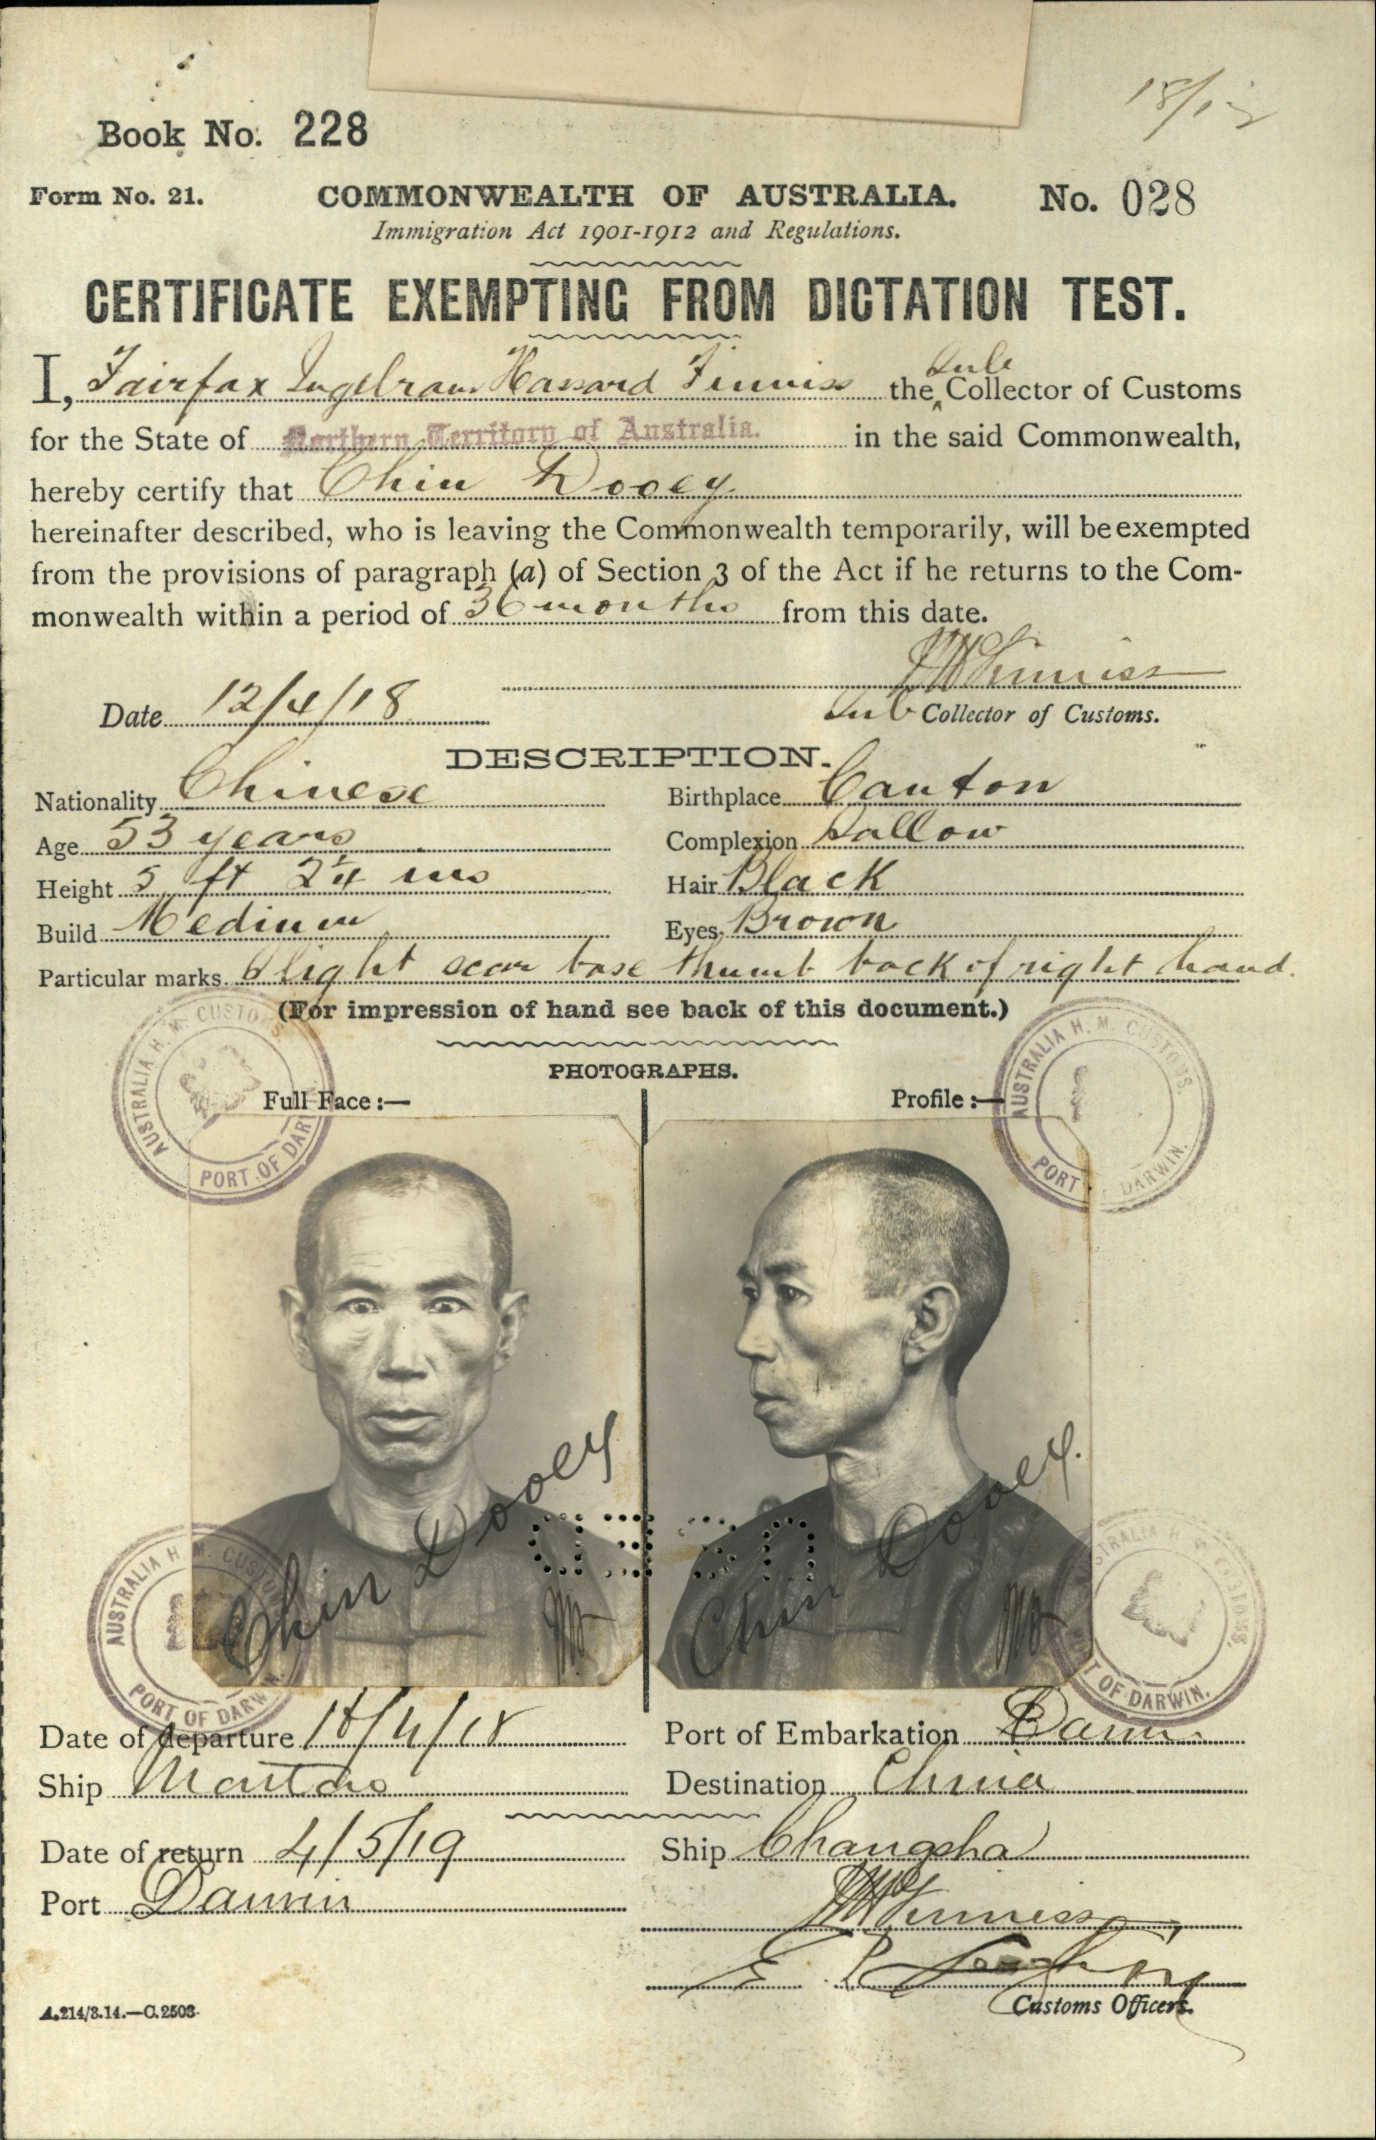 18/12
Book No. 228
Form No. 21. COMMONWEALTH OF AUSTRALIA. No. 028
Immigration Act 1901-1912 and Regulations.
CERTIFICATE EXEMPTING FROM DICTATION TEST.
I, Fairfax Ingelram Hassard Finniss the Sub Collector of Customs
for the State of Northern Territory of Australia. in the said Commonwealth,
hereby certify that Chin Dooey
hereinafter described, who is leaving the Commonwealth temporarily, will be exempted
from the provisions of paragraph (a) of Section 3 of the Act if he returns to the Com-
monwealth within a period of 36 months from this date.
Finniss
Date 12/4/18 Sub Collector of Customs.
DESCRIPTION.
Nationality Chinese Birthplace Canton
Age 53 years Complexion Sallow
Height 5 ft 2 1/4 ins Hair Black
Build Medium Eyes Brown
Particular marks Slight scar base thumb back of right hand.
(For impression of hand see back of this document.)
PHOTOGRAPHS.
Full Face:— Profile:—
AUSTRALIA H. M. CUSTOMS PORT OF DARWIN
AUSTRALIA H. M. CUSTOMS. PORT DARWIN.
Chin Dooey Chin Dooey.
USED
AUSTRALIA H. M. CUSTOMS PORT OF DARWIN
AUSTRALIA H. M. CUSTOMS. PORT OF DARWIN.
Date of departure 18/4/18 Port of Embarkation Darwin
Ship Mataram Destination China
Date of return 4/5/19 Ship Changsha
Port Darwin Finniss
Customs Officers.
A.214/3.14.—C.2503